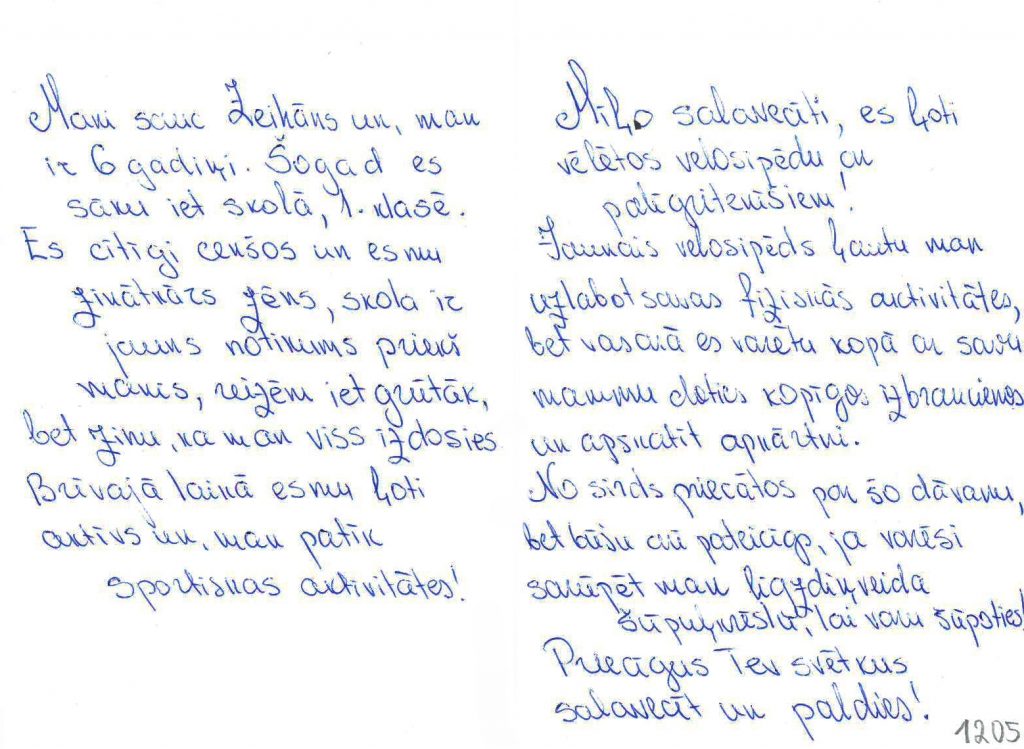 Mani sauc Zeihāns un, man
ir 6 gadiņi. Šogad es
sāku iet skolā, 1. klasē.
Es cītīgi cenšos un esmu
zinātkārs zēns, skola ir
jauns notikums priekš
manis, reizēm iet grūtāk,
bet zinu, ka man viss izdosies
Brīvajā laikā esmu ļoti
aktīvs un, man patīk
sportiskas aktivitātes!
Mīļo salavecīti, es ļoti
vēlētos velosipēdu ar
palīgritenīšiem!
Jaunais velosipēds ļautu man
uzlabot savas fiziskās aktivitātes,
bet vasarā es varētu kopā ar savu
mammu doties kopīgos izbraucienos
un apskatīt apkārtni.
No sirds priecātos par šo dāvanu,
bet būšu arī pateicīgs, ja varēsi
sarūpēt man ligzdiņveida
šūpuļkrēslu, lai varu šūpoties!
Priecīgus Tev svētkus
salavecīt un paldies!
1205